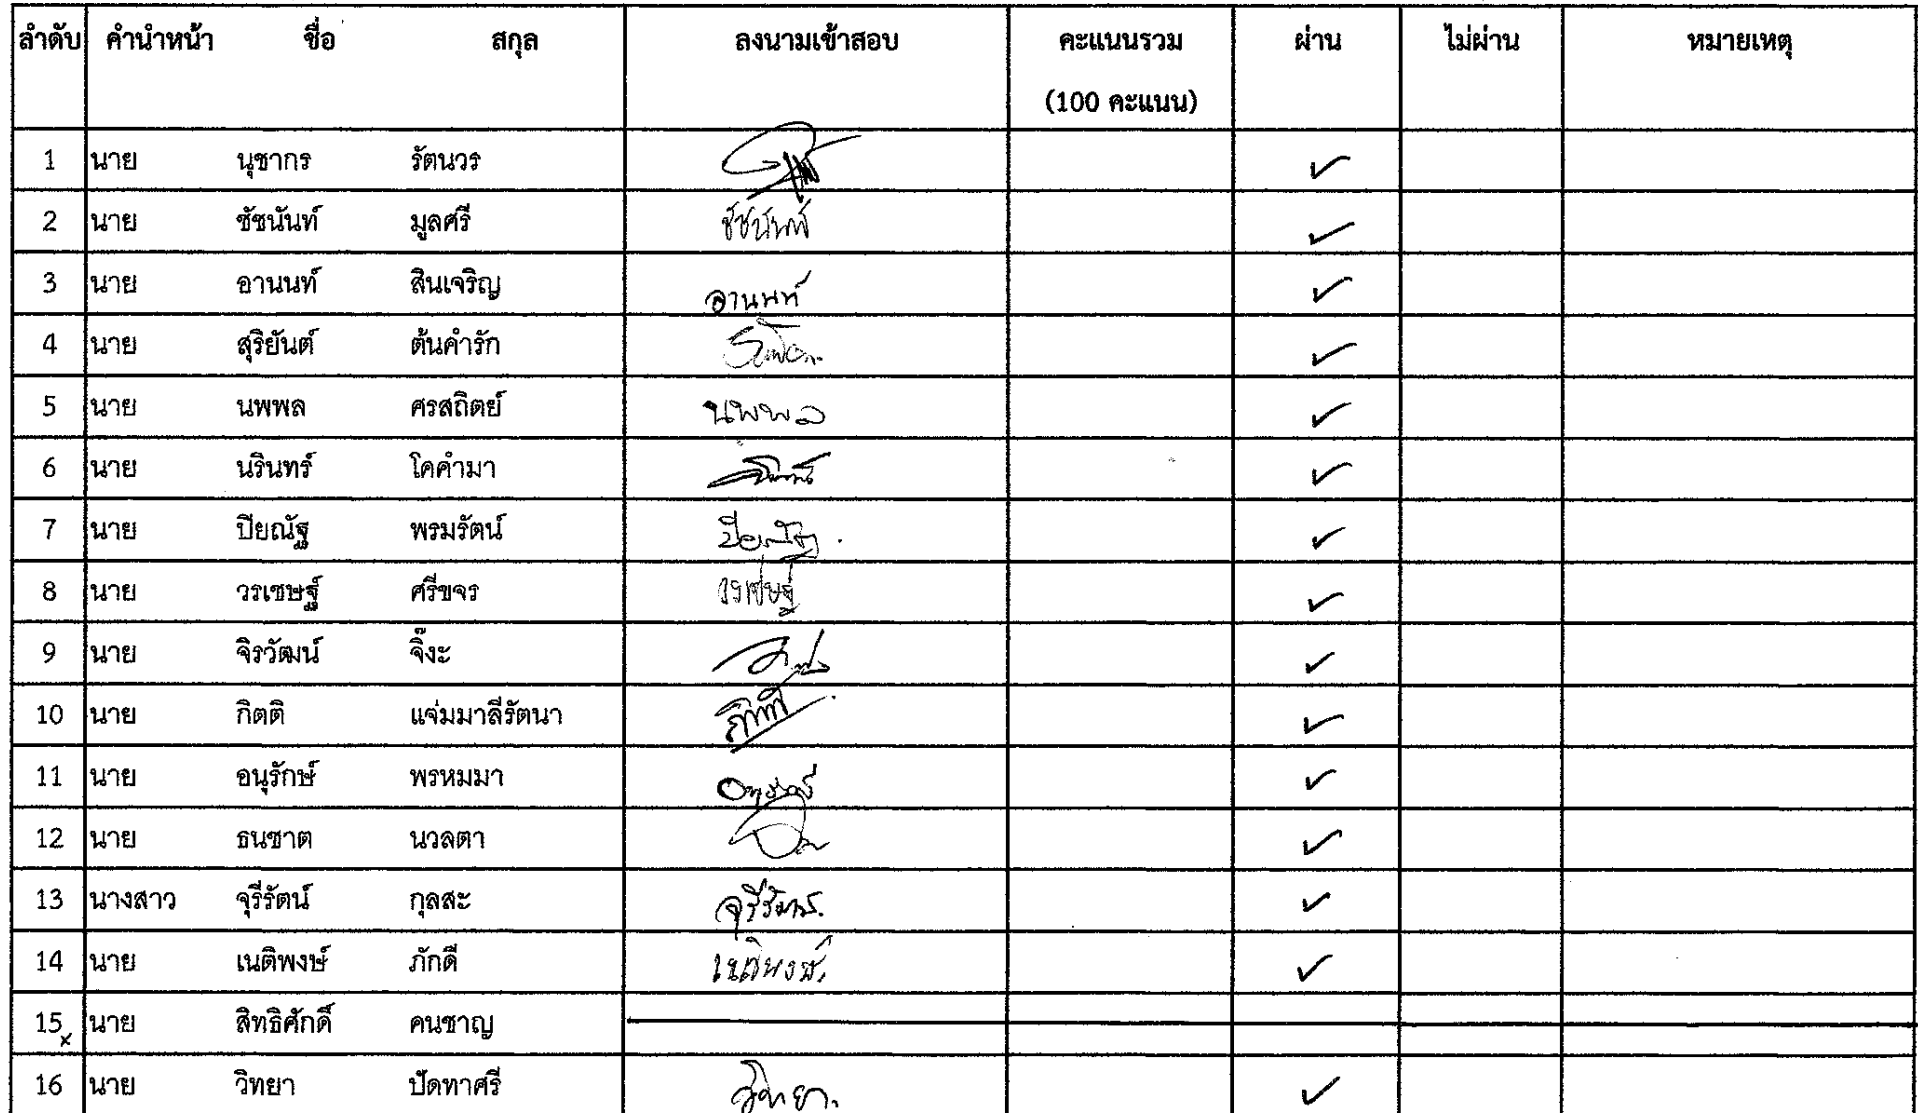 ลำดับ คำนำหน้า ชื่อ สกุล ลงนามเข้าสอบ คะแนนรวม ผ่าน ไม่ผ่าน หมายเหตุ
(100 คะแนน)
1 นาย นุชากร รัตนวร ✓
2 นาย ชัชนันท์ มูลศรี ชัชนันท์ ✓
3 นาย อานนท์ สินเจริญ อานนท์ ✓
4 นาย สุริยันต์ ต้นคำรัก ✓
5 นาย นพพล ศรสถิตย์ นพพล ✓
6 นาย นรินทร์ โคคำมา ✓
7 นาย ปิยณัฐ พรมรัตน์ ปิยณัฐ ✓
8 นาย วรเชษฐ์ ศรีขจร วรเชษฐ์ ✓
9 นาย จิรวัฒน์ จิ๊งะ ✓
10 นาย กิตติ แจ่มมาลีรัตนา กิตติ ✓
11 นาย อนุรักษ์ พรหมมา อนุรักษ์ ✓
12 นาย ธนชาต นวลตา ✓
13 นางสาว จุรีรัตน์ กุลสะ จุรีรัตน์ ✓
14 นาย เนติพงษ์ ภักดี เนติพงษ์ ✓
15 x นาย สิทธิศักดิ์ คนชาญ
16 นาย วิทยา ปัดทาศรี วิทยา ✓